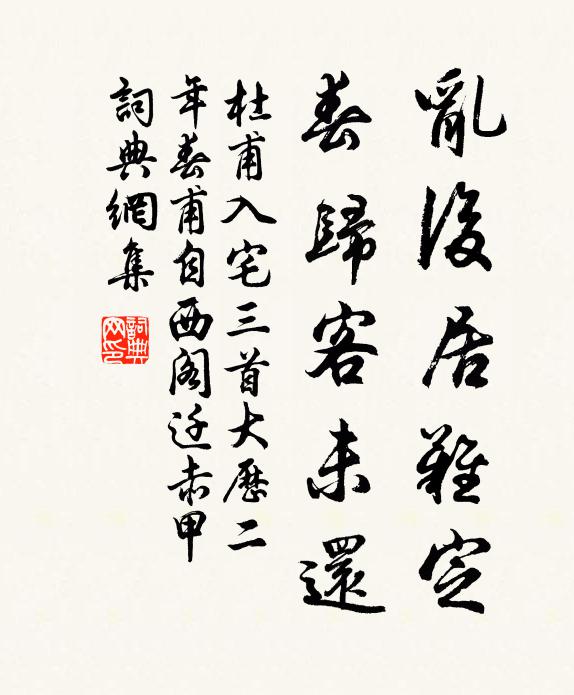 亂後居難定
春歸客未還
杜甫入宅三首大歷二
年春甫自西閣迁赤甲
詞典網集
詞典网印